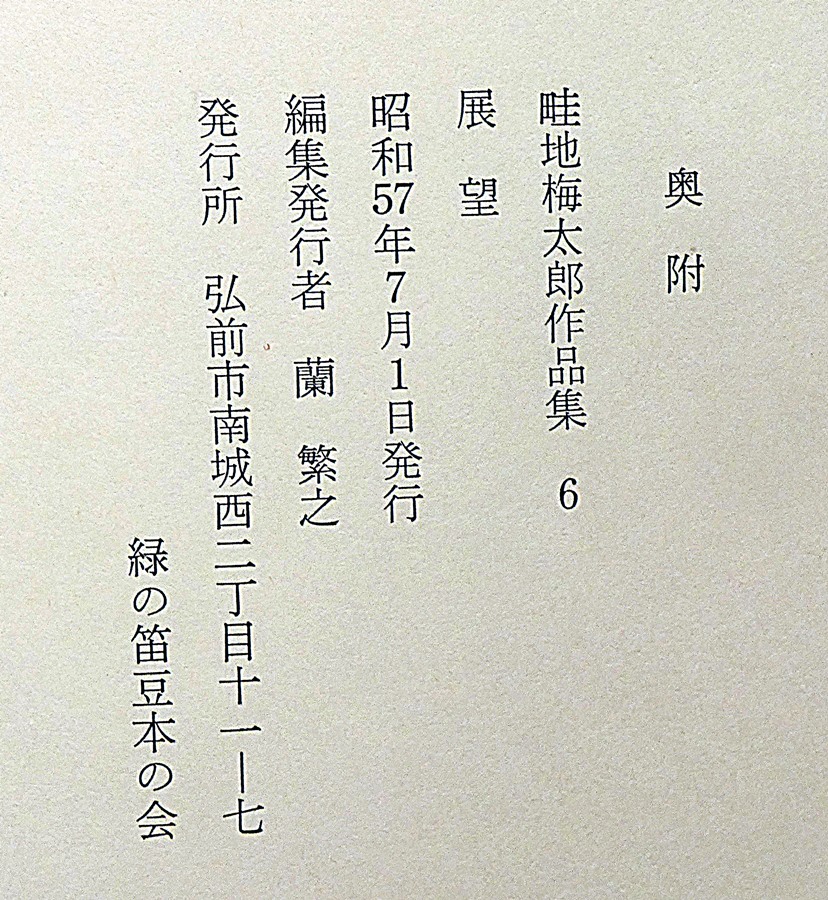 奥附
畦地梅太郎作品集 6
展望
昭和57年7月1日発行
編集発行者 蘭 繁之
発行所 弘前市南城西二丁目十一―七
緑の笛豆本の会